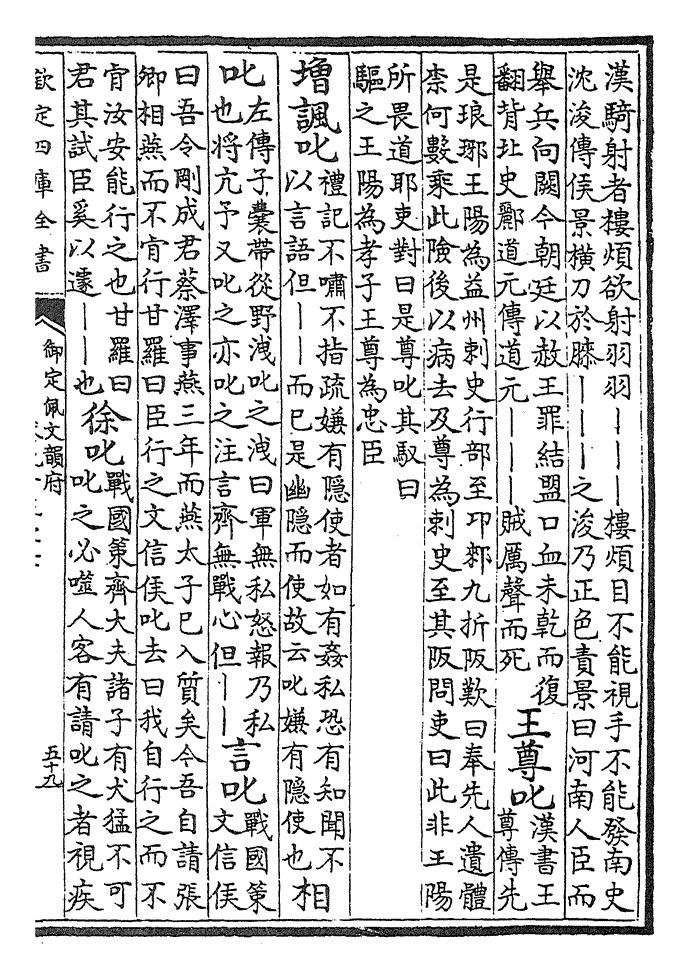 漢騎射者樓煩欲射羽羽｜｜｜樓煩目不能視手不能發南史
沈浚傳侯景横刀於膝｜｜｜之浚乃正色責景曰河南人臣而
舉兵向闕今朝廷以赦王罪結盟口血未乾而復
翻背北史酈道元傳道元｜｜｜賊厲聲而死
王尊叱
漢書王
尊傳先
是琅琊王陽為益州刺史行部至卭郲九折阪歎曰奉先人遺體
柰何數乘此險後以病去及尊為刺史至其阪問吏曰此非王陽
所畏道耶吏對曰是尊叱其馭曰
驅之王陽為孝子王尊為忠臣
増諷叱
禮記不嘯不指疏嫌有隠使者如有姦私恐有知聞不
以言語但｜｜而已是幽隠而使故云叱嫌有隠使也
相
叱
左傳子囊帶從野洩叱之洩曰軍無私怒報乃私
也将亢予又叱之亦叱之注言齊無戰心但｜｜
言叱
戰國策
文信侯
曰吾令剛成君蔡澤事燕三年而燕太子已入質矣今吾自請張
卿相燕而不肯行甘羅曰臣行之文信侯叱去曰我自行之而不
肯汝安能行之也甘羅曰
君其試臣奚以遽｜｜也
徐叱
戰國策齊大夫諸子有犬猛不可
叱之必噬人客有請叱之者視疾
欽定四庫全書
御定佩文韻府
五十九